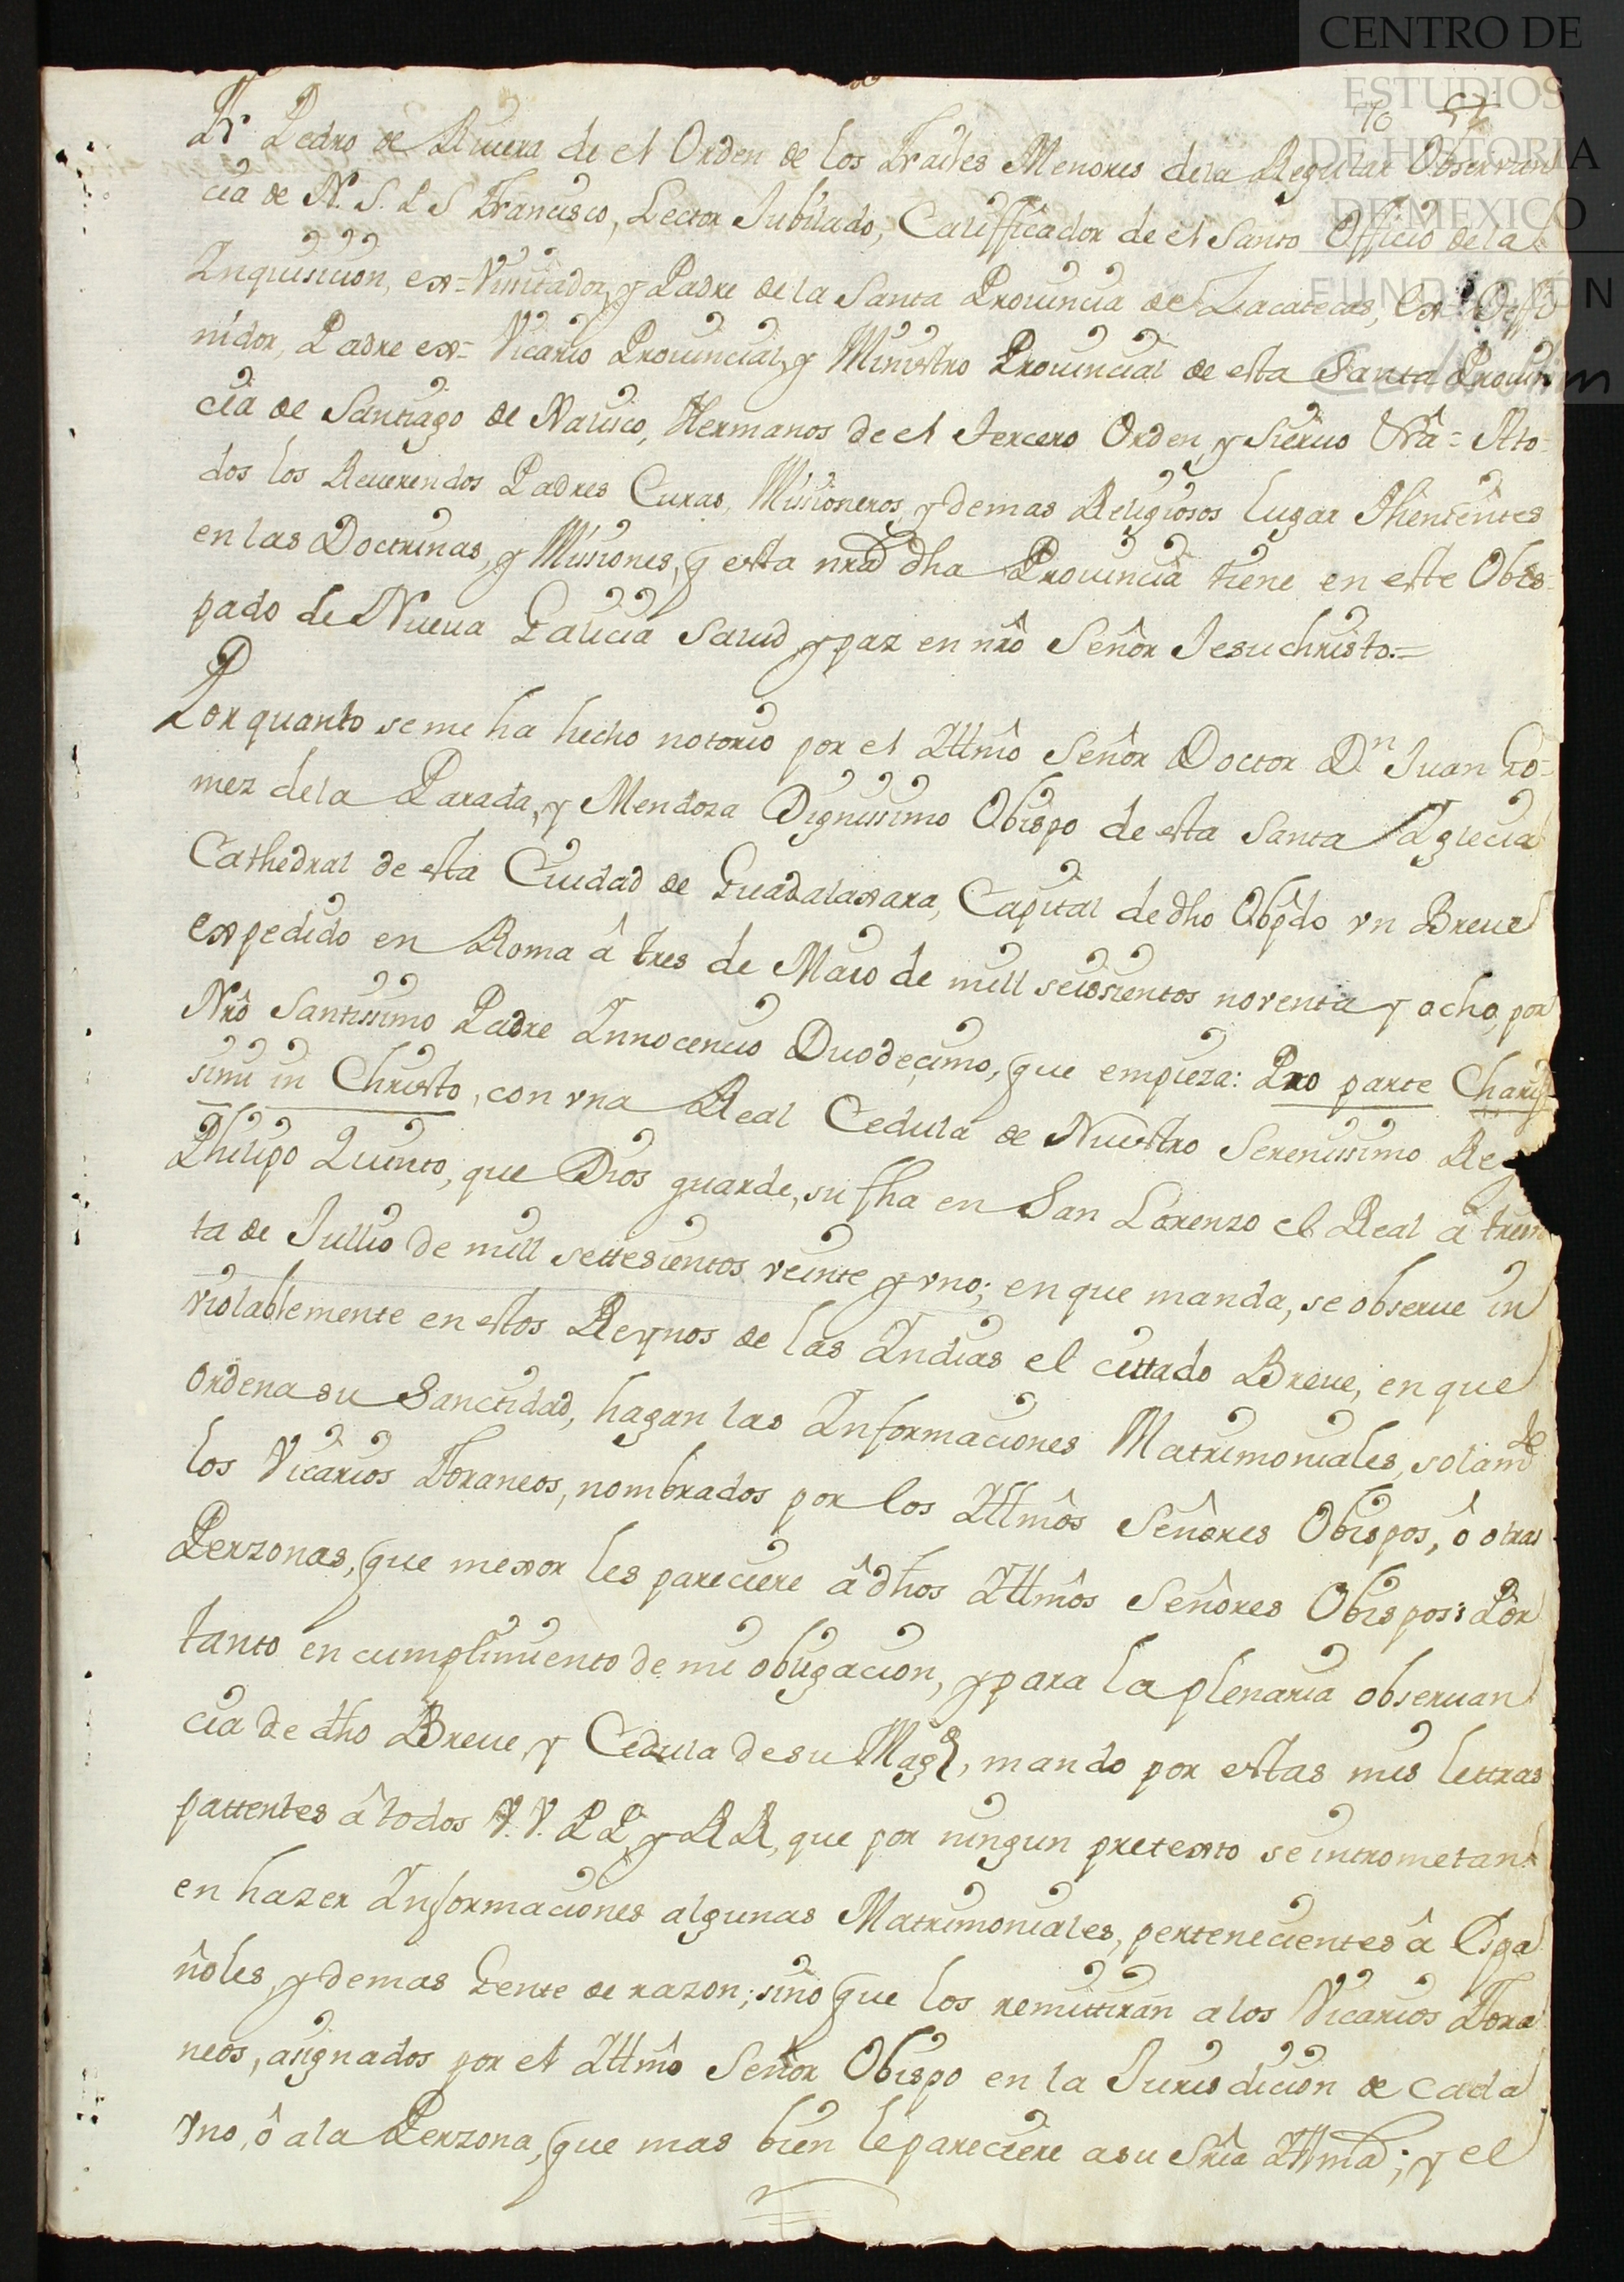 CENTRO DE
ESTUDIOS
DE HISTORIA
DE MEXICO
FUNDACIÓN
70 57
Fr Pedro de Rivera de el Orden de los Frailes Menores dela Regular Observan
cia de N. S. P S Francisco, Lector Jubilado, Califficador de el Santo Officio dela
Inquisicion, ex-Visitador, y Padre de la Santa Provincia de Zacatecas, Ex Deffi
nidor, Padre ex- Vicario Provincial, y Ministro Provincial de esta Santa Provin
cia de Santiago de Xalisco, Hermanos de el tercero Orden, y Siervo Vrâ = Ato-
dos los Reverendos Padres Curas, Missioneros, y demas Religiosos lugar thenientes
en las Doctrinas, y Missiones, q esta nrâ dha Provincia tiene en este Obis-
pado de Nueva Galicia Salud y paz en nrô Señor Jesuchristo.=
Por quanto se me ha hecho notorio por el Illmô Señor Doctor Dn Juan Gô-
mez dela Parada, y Mendoza Dignissimo Obispo de esta Santa Iglecia
Cathedral de esta Ciudad de Guadalaxara, Capital de dho Obpdo vn Breve
expedido en Roma â tres de Maio de mill seiosientos noventa y ocho, por
Nrô Santissimo Padre Innocencio Duodecimo, que empieza: Pro parte Charis-
simi in Christo, con vna Real Cedula de Nuestro Serenissimo Rey
Phelipo Quinto, que Dios guarde, su fha en San Lorenzo el Real â trein
ta de Jullio de mill settesientos veinte y vno; en que manda, se observe in
violablemente en estos Reynos de las Indias el cittado Breve, en que
Ordena su Sanctidad, hagan las Informaciones Matrimoniales, solamte
los Vicarios Foraneos, nombrados por los Illmôs Señores Obispos, ô otras
Perzonas, que mexor les pareciere â dhos Illmôs Señores Obispos: Por
tanto en cumplimiento de mi obligacion, y para la plenaria observan
cia de dho Breve, y Cedula de su Magd, mando por estas mis lettras
pattentes â todos V.V. P P, y R R, que por ningun pretexto se intrometan
en hazer Informaciones algunas Matrimoniales, pertenecientes â Espa
ñoles, y demas Gente de razon; sino que los remittirán a los Vicarios Fora
neos, asignados por el Illmô Señor Obispo en la Jurisdicion de cada
vno, ô ala Perzona, que mas bien le pareciere a su Sriâ Illmâ; y el